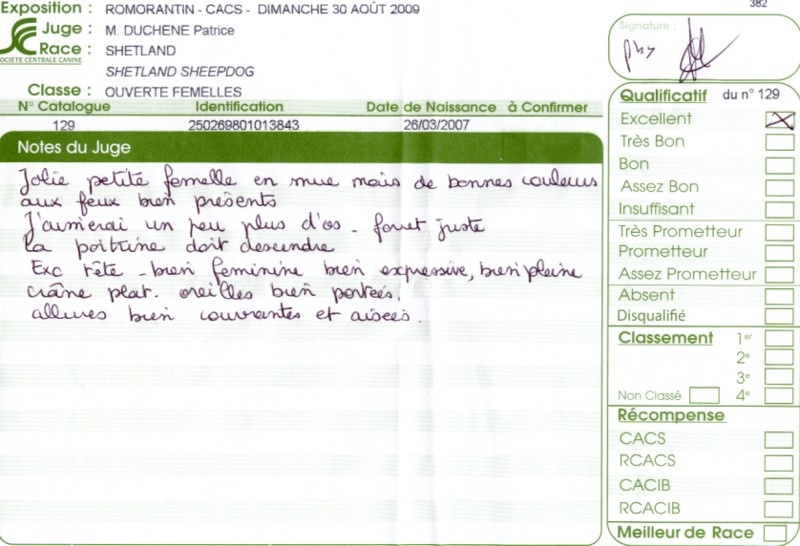 382
Exposition : ROMORANTIN - CACS - DIMANCHE 30 AOÛT 2009
Juge : M. DUCHENE Patrice
Race : SHETLAND
SOCIETE CENTRALE CANINE
SHETLAND SHEEPDOG
Classe : OUVERTE FEMELLES
N° Catalogue Identification Date de Naissance à Confirmer
129 250269801013843 26/03/2007
Notes du Juge
Jolie petite femelle en mue mais de bonnes couleurs
aux feux bien présents
J'aimerai un peu plus d'os - juste
la poitrine doit descendre
Exc tête - bien feminine bien expressive, bien pleine
crâne plat. oreilles bien portées.
allures bien couvrantes et aisées.
Signature :
Qualificatif du n° 129
Excellent
Très Bon
Bon
Assez Bon
Insuffisant
Très Prometteur
Prometteur
Assez Prometteur
Absent
Disqualifié
Classement 1er
2e
3e
Non Classé 4e
Récompense
CACS
RCACS
CACIB
RCACIB
Meilleur de Race